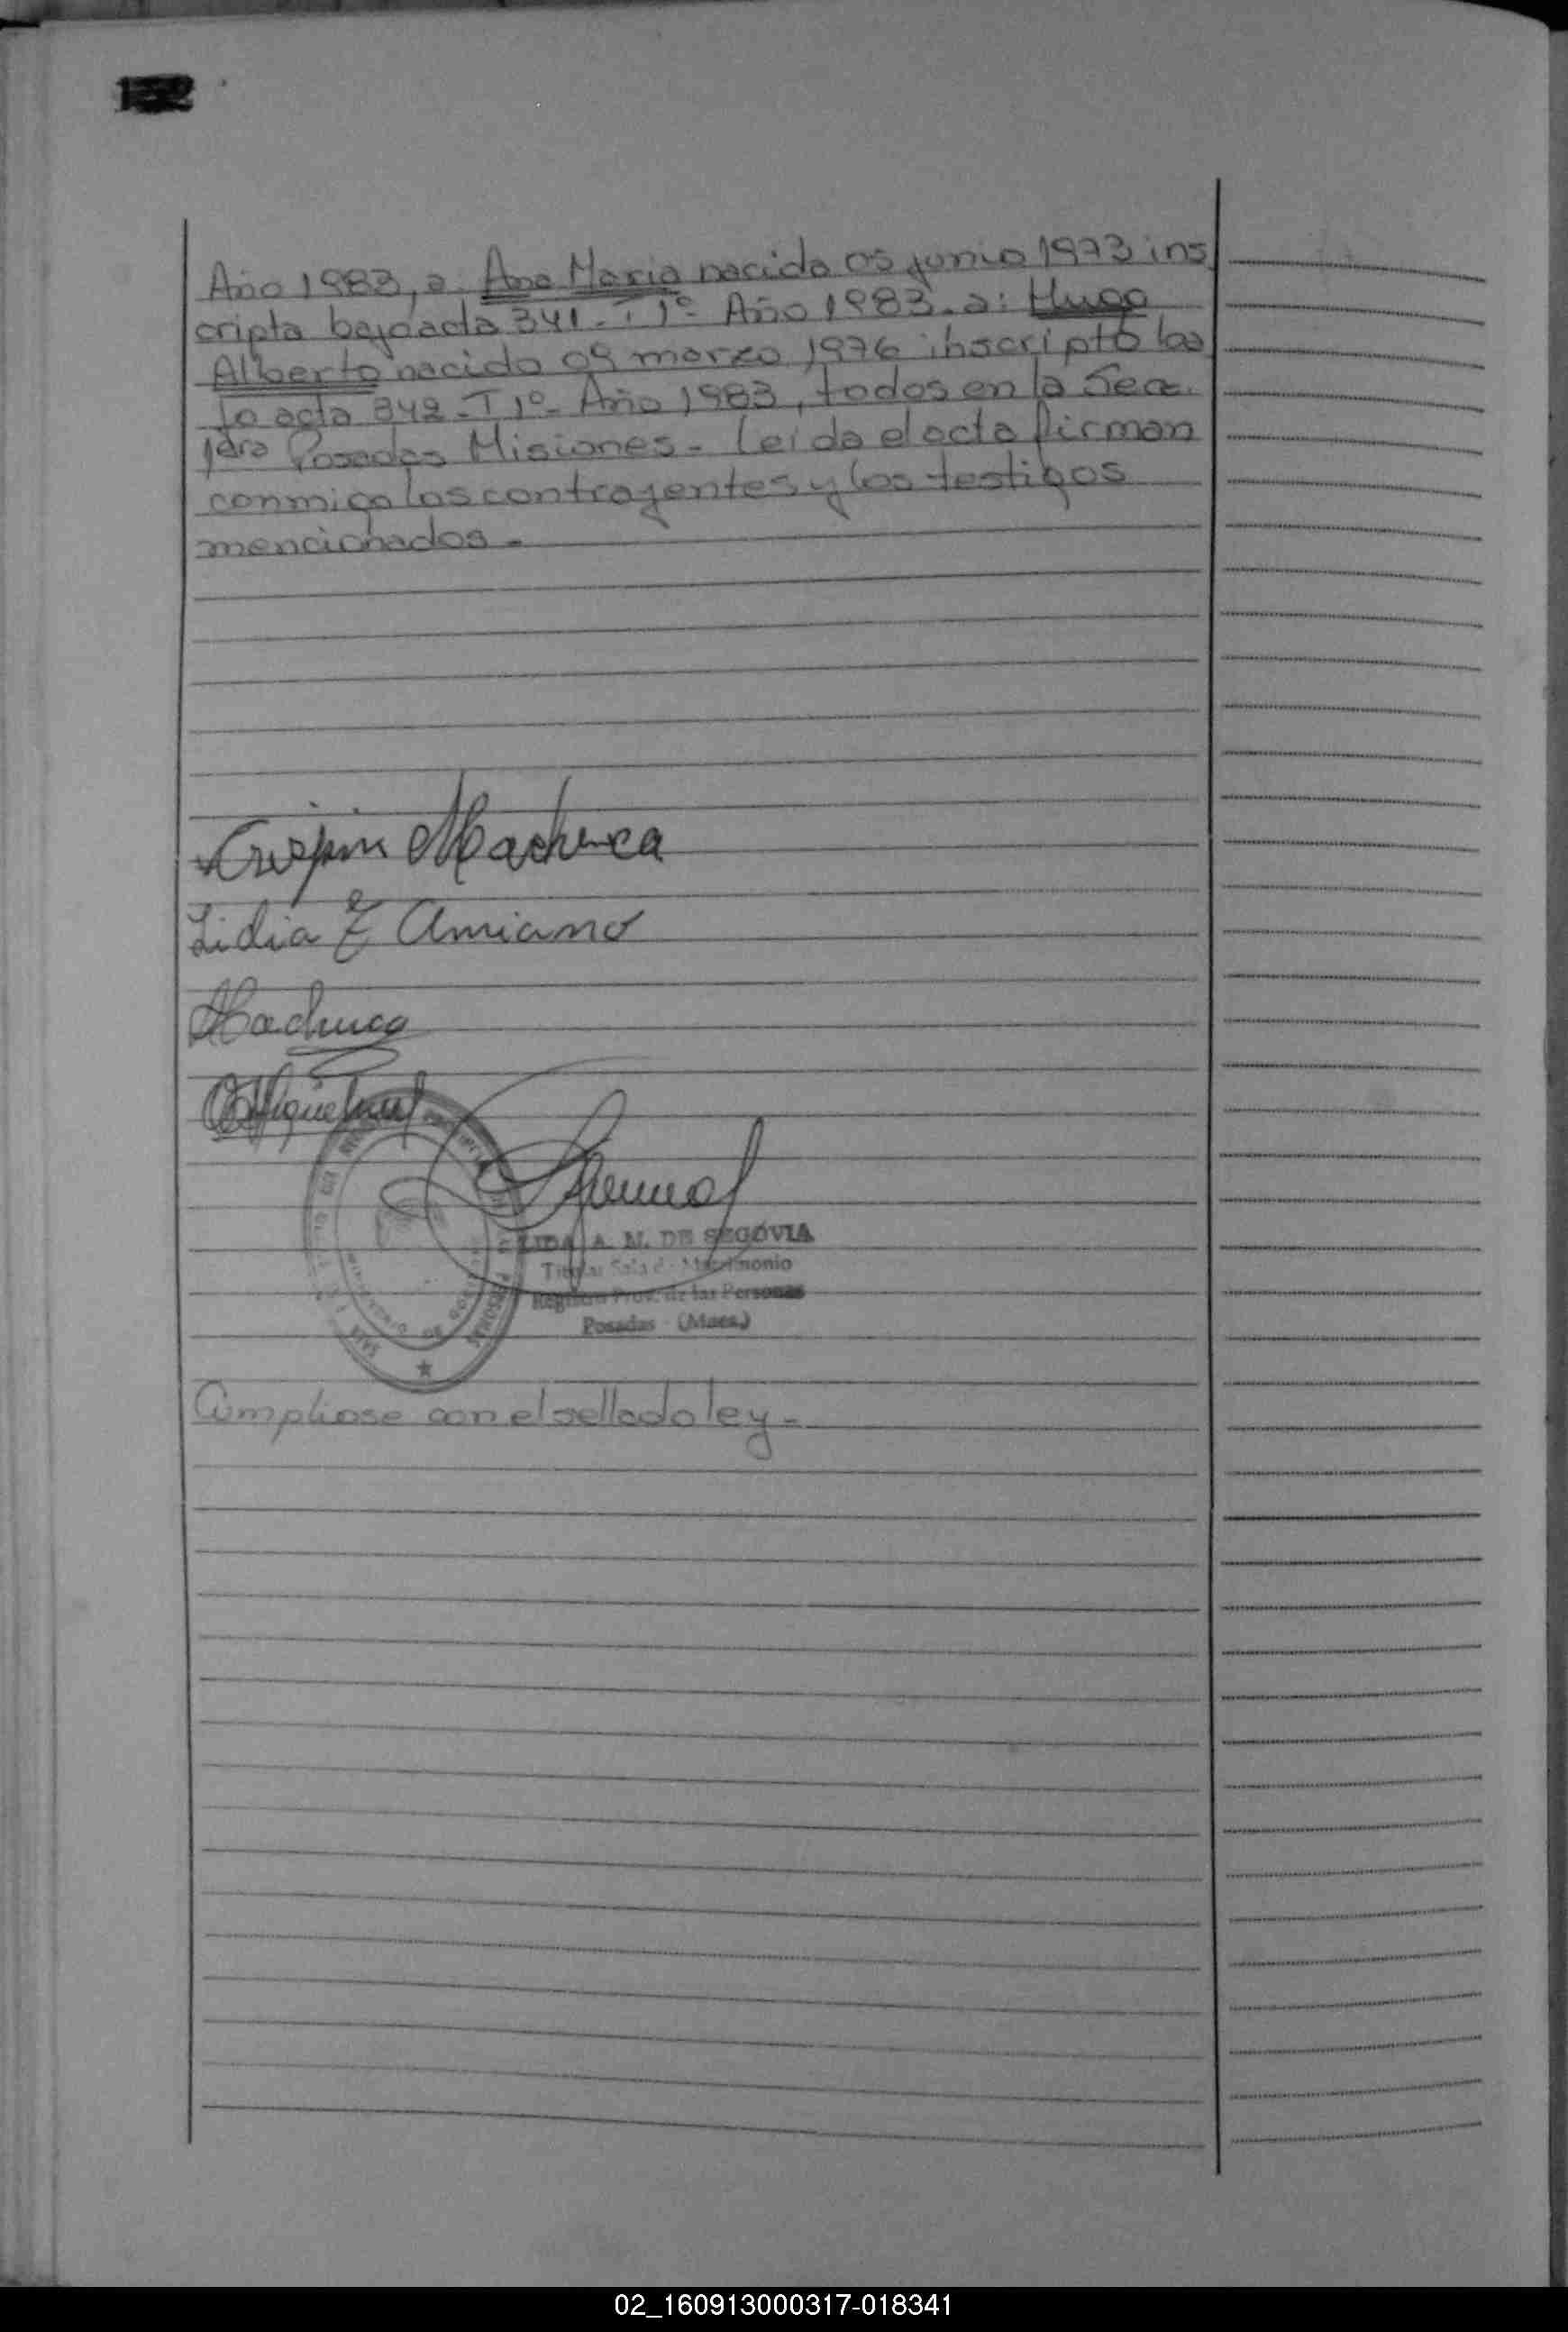 Año 1983, a. Ana Maria nacida 05 junio 1973 ins
cripta bajo acta 341 - T 1º - Año 1983. a: Hugo
Alberto nacido 09 marzo 1976 inscripto ba
jo acta 342 - T 1º - Año 1983, todos en la Secc.
1era Posadas Misiones - Leída el acta firman
conmigo los contrayentes y los testigos
mencionados -
Crispin Machuca
Lidia Z Amiano
Machuca
LIDA A. M. DE SEGOVIA
Titular Sala de Matrimonio
Registro Prov. de las Personas
Posadas - (Mnes.)
Cumpliose con el sellado ley -
02_160913000317-018341